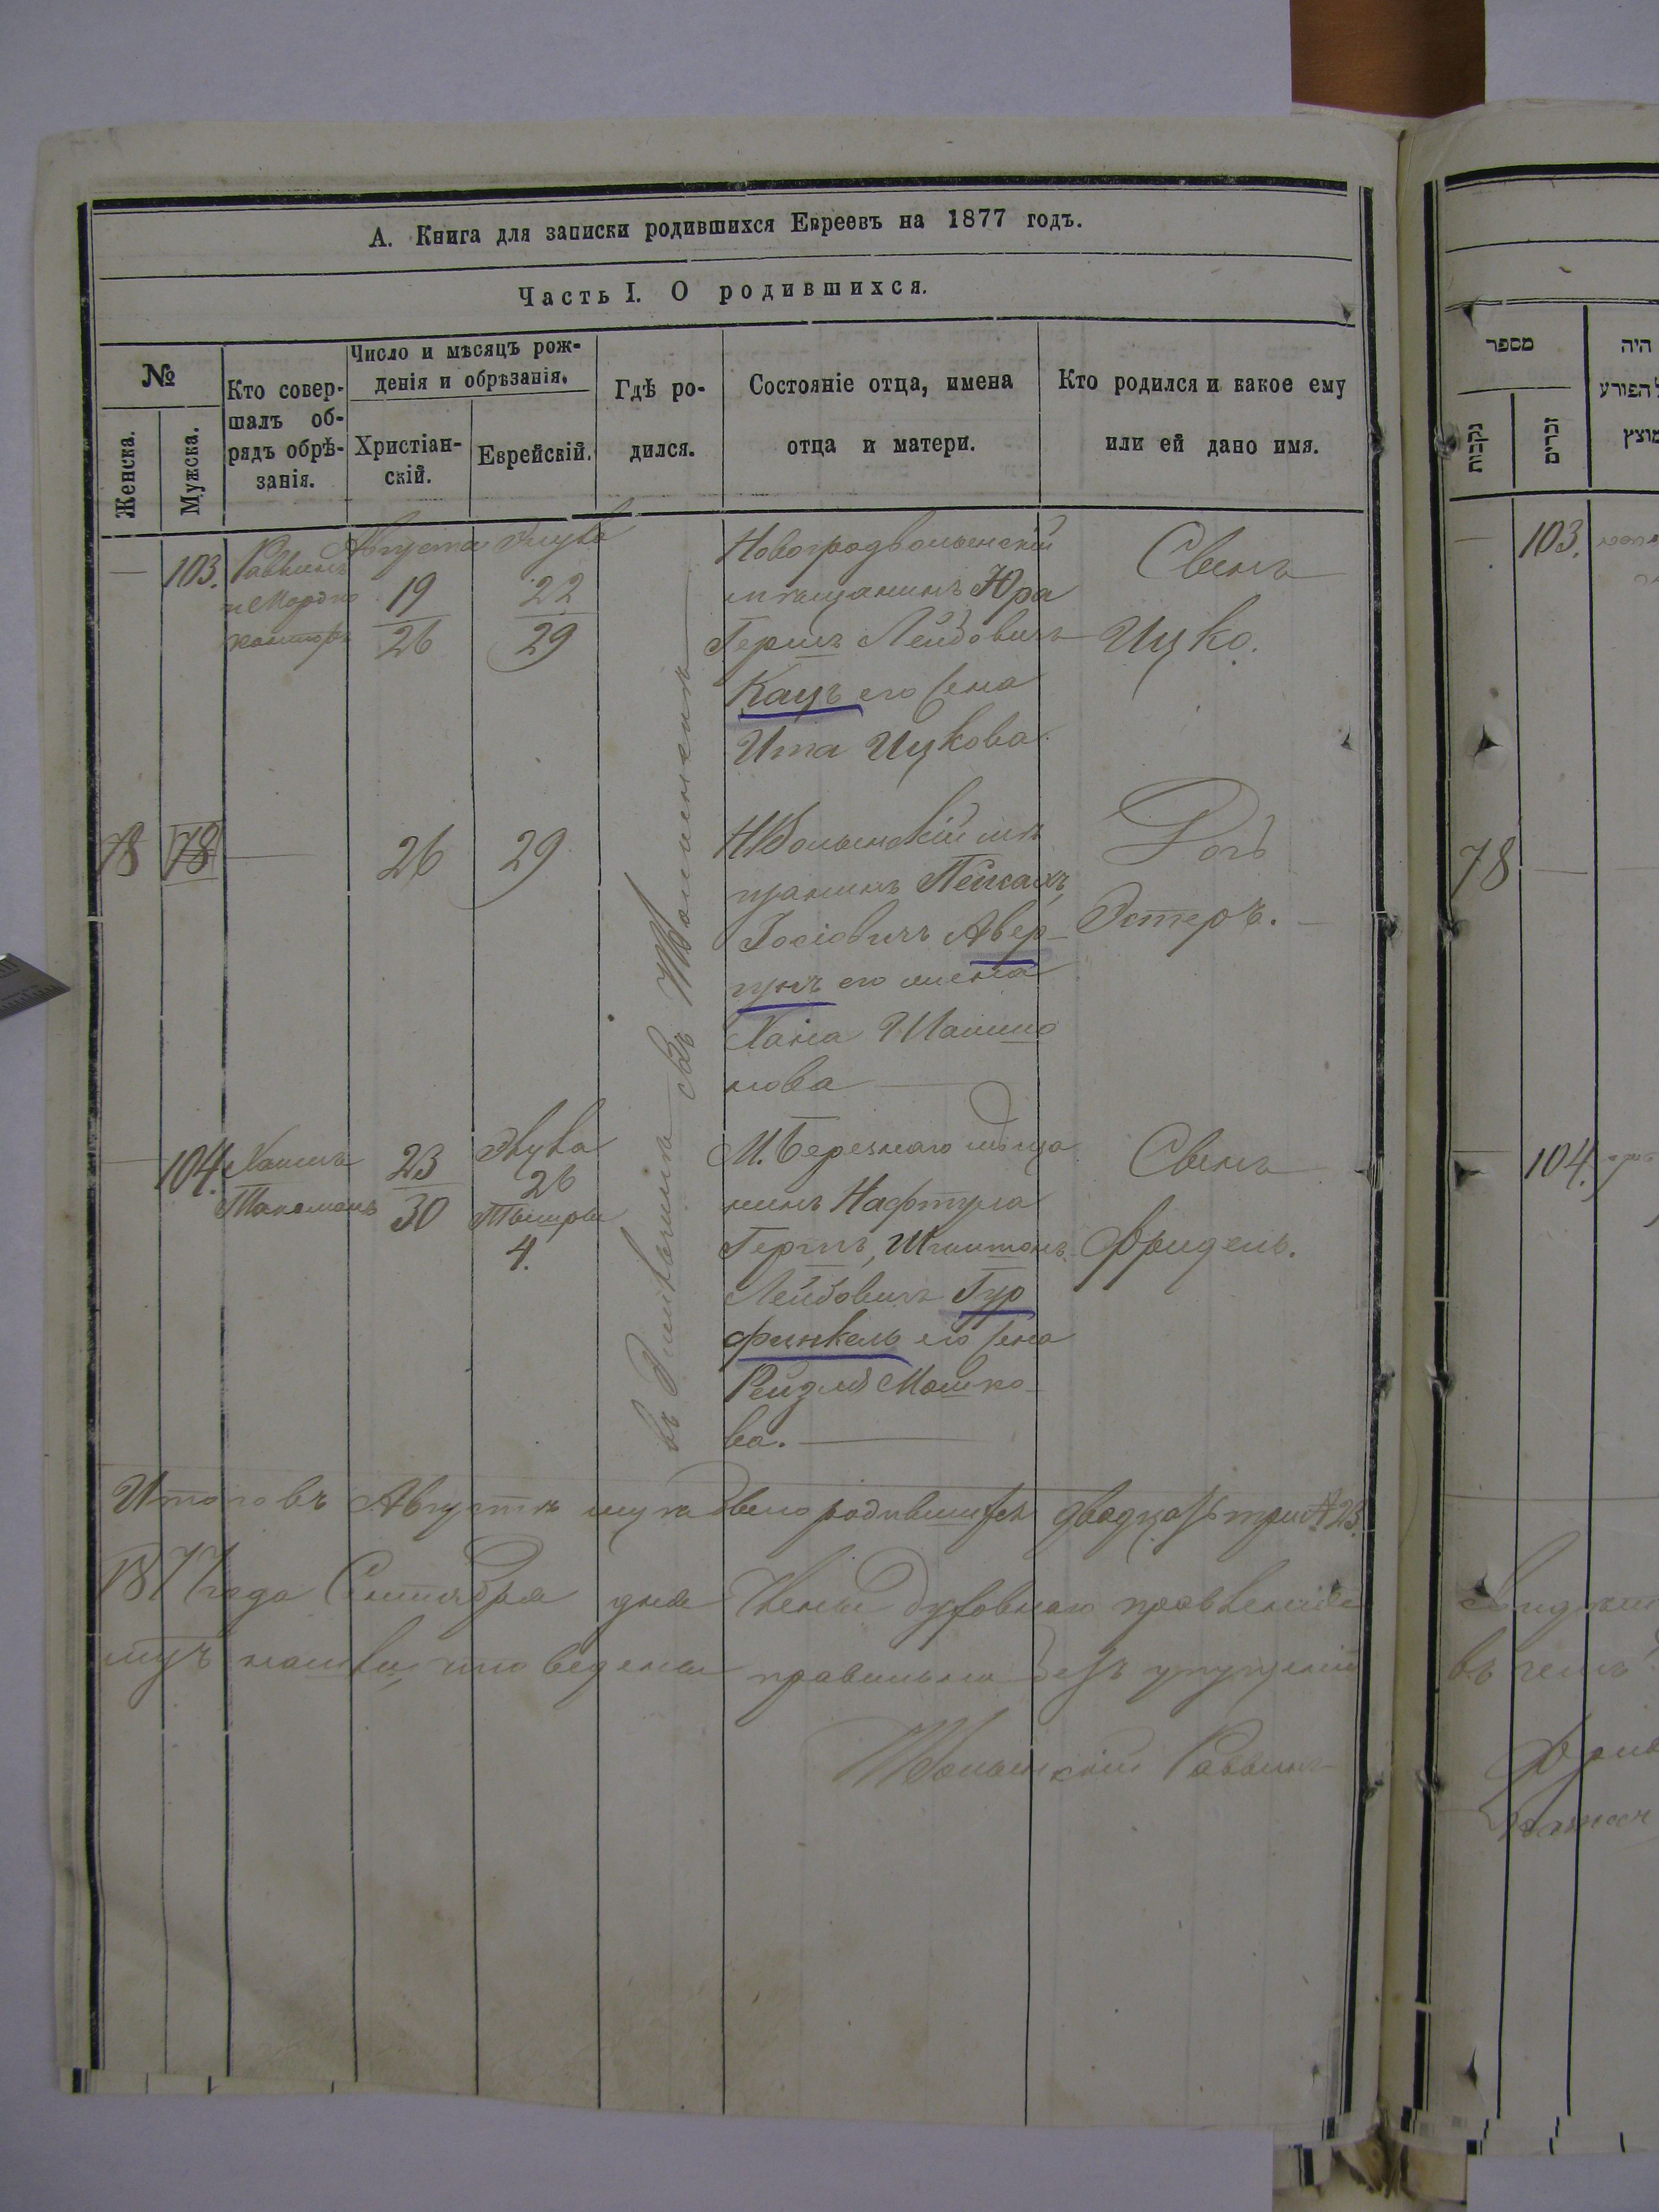 А. Книга для записки родившихся Евреевъ на 1877 годъ.
Часть I. О родившихся.
№
Женска.
Мужска.
Кто совер-
шалъ об-
рядъ обрѣ-
занія.
Число и мѣсяцъ рож-
денія и обрѣзанія.
Христіан-
скій.
Еврейскій.
Гдѣ ро-
дился.
Состояніе отца, имена
отца и матери.
Кто родился и какое ему
или ей дано имя.
103.
Раввинъ
и Мордко
Августа
19
26
Элула
22
29
Новоградволынскій
мѣщанинъ Юра
Гершъ Лейбовичъ
Кацъ его жена
Ита Ицкова.
Сынъ
Ицко.
78
78
26
29
НВолынскій мѣ
щанинъ Пейсахъ,
Іосіовичъ Авер-
его жена
Хана
нова
Дочь
Эстеръ.
104.
Хаимъ
23
30
Элула
26
Тышры
4.
М. Березнаго мѣща
нинъ Нафтула
Гершъ,
Лейбовичъ Гур
финкель его жена
Рейзля Мошко-
ва.
Сынъ
Фридель.
въ НВолынскѣ
Итого въ Августѣ родившихся двадцать три № 23.
1877 года Сентября дня Члены духовнаго правленія
что ведены правильно безъ упущеній
НВолынскій Раввинъ
מספר
נקבות
זכרים
היה
הפורע
מוצץ
103.
78
104.